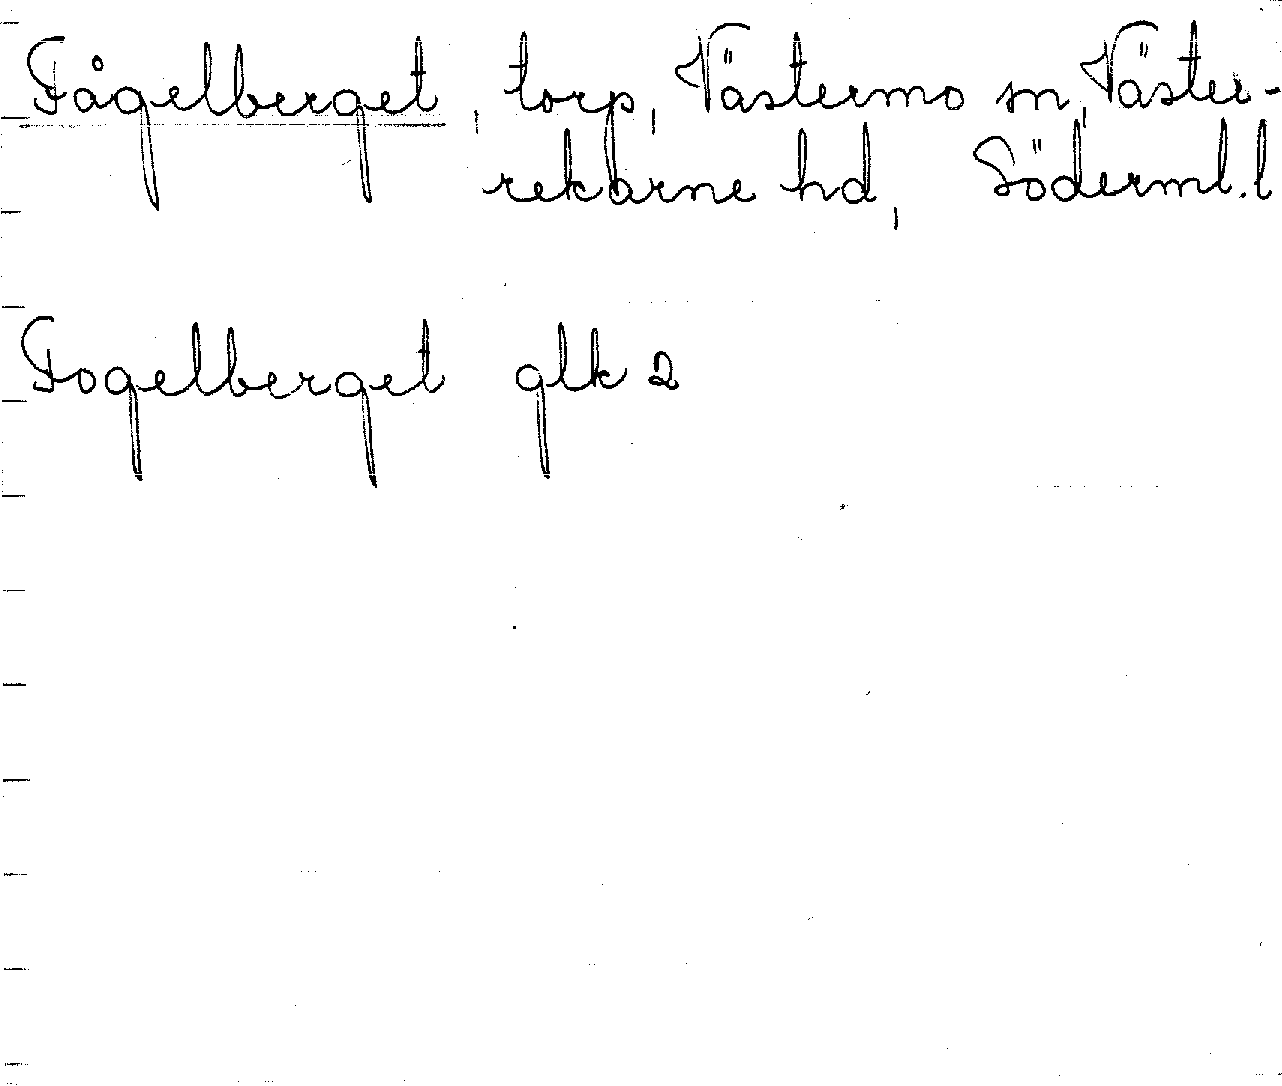 Fågelberget, torp, Västermo sn, Väster-
rekarne hd, Söderml. l
Fogelberget glk 2